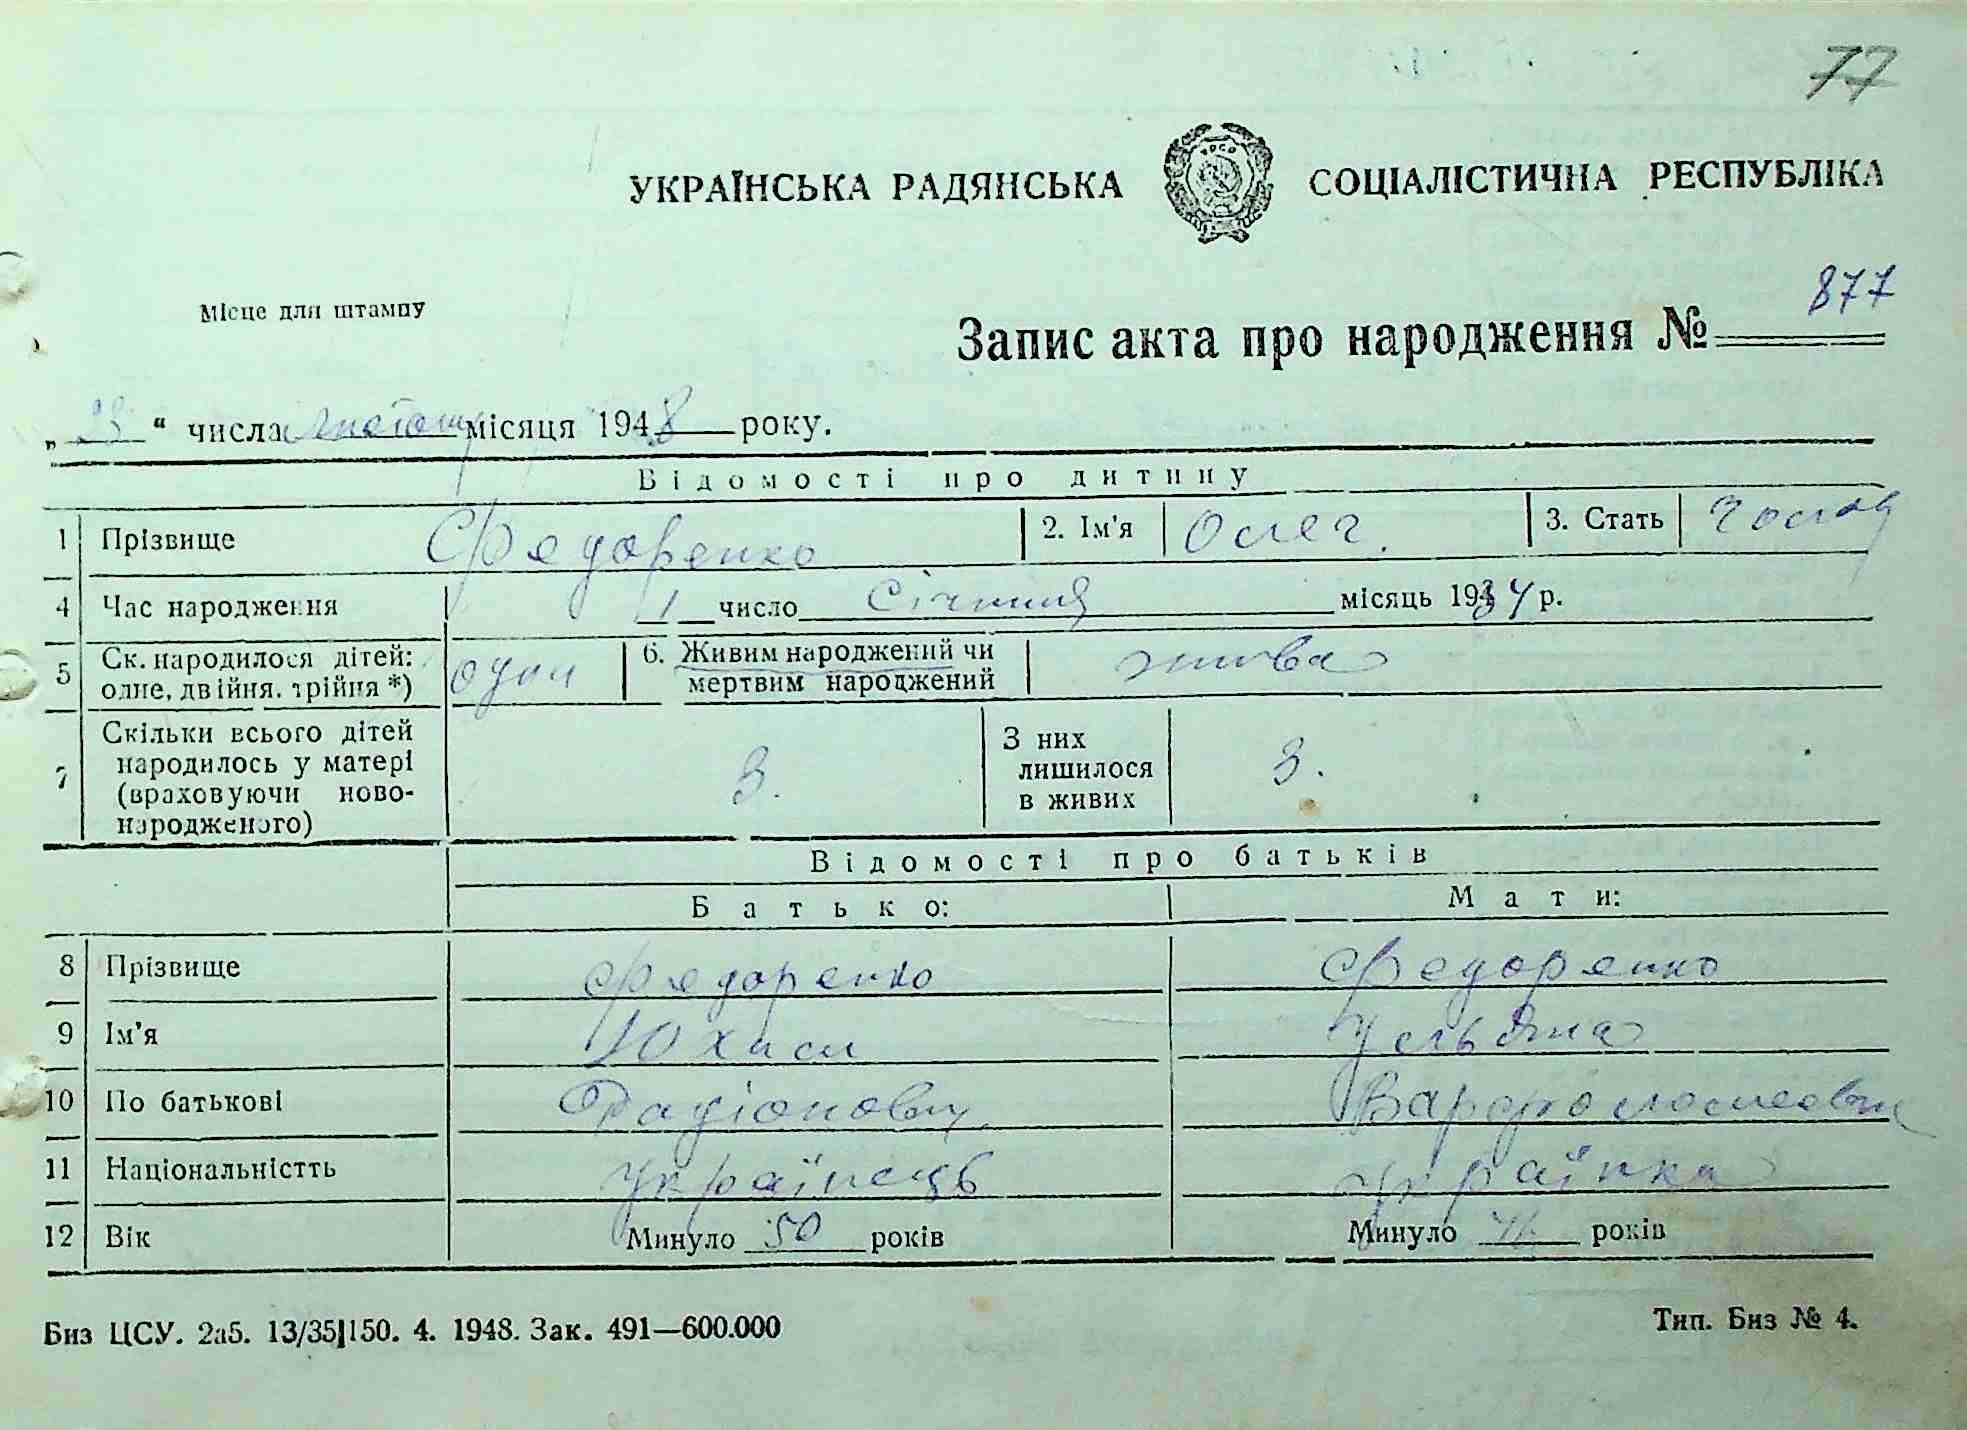 77
УКРАЇНСЬКА РАДЯНСЬКА СОЦІАЛІСТИЧНА РЕСПУБЛІКА
Місце для штампу
Запис акта про народження № 877
„ 23 “ числа місяця 1948 року.
Відомості про дитину
1 Прізвище Федоренко 2. Ім'я Олег. 3. Стать
4 Час народження 1 число Січиня місяць 1934 р.
5 Ск. народилося дітей: одне, двійня, трійня *) один 6. Живим народжений чи мертвим народжений жива
7 Скільки всього дітей народилось у матері (враховуючи ново- народженого) 3. З них лишилося в живих 3.
Відомості про батьків
Батько: Мати:
8 Прізвище Федоренко Федоренко
9 Ім'я Юхим Ульяна
10 По батькові Радіонович Варфоломеевна
11 Національністть українець українка
12 Вік Минуло 50 років Минуло років
Биз ЦСУ. 2а5. 13/35|150. 4. 1948. Зак. 491—600.000 Тип. Биз № 4.